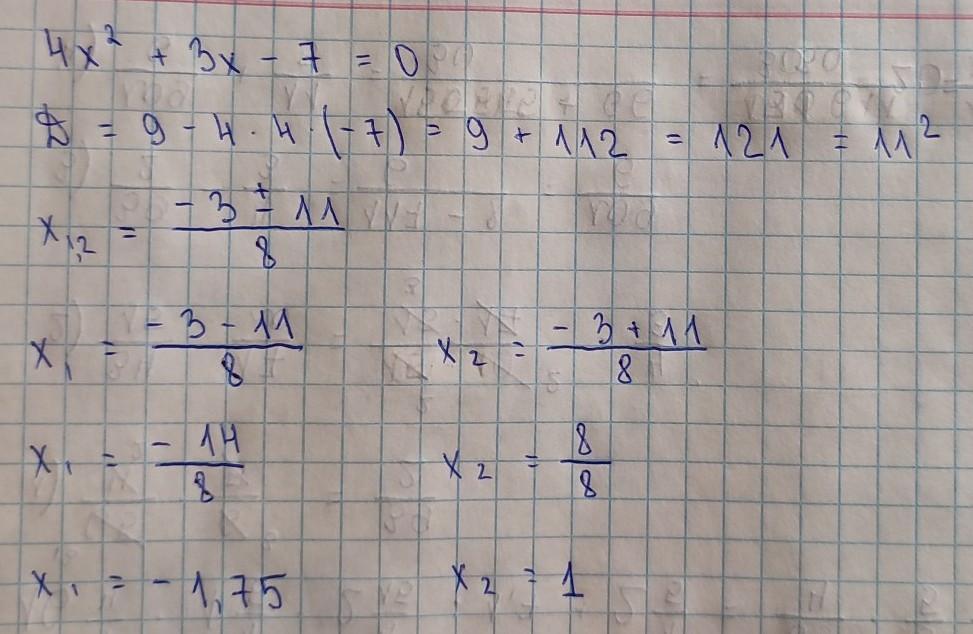 4x² + 3x - 7 = 0
D = 9 - 4 · 4 · (-7) = 9 + 112 = 121 = 11²
x₁,₂ = (-3 ± 11)/8
x₁ = (-3 - 11)/8    x₂ = (-3 + 11)/8
x₁ = -14/8    x₂ = 8/8
x₁ = -1,75    x₂ = 1